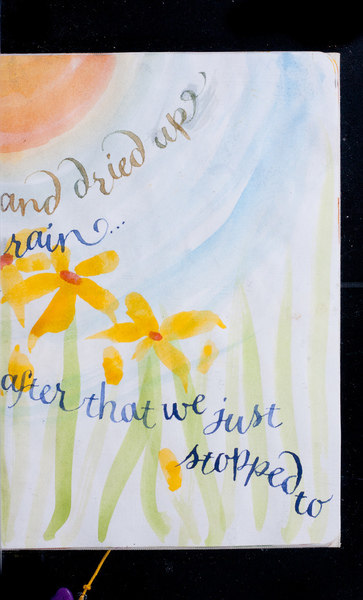 and dried up
rain...
after that we just
stopped
to